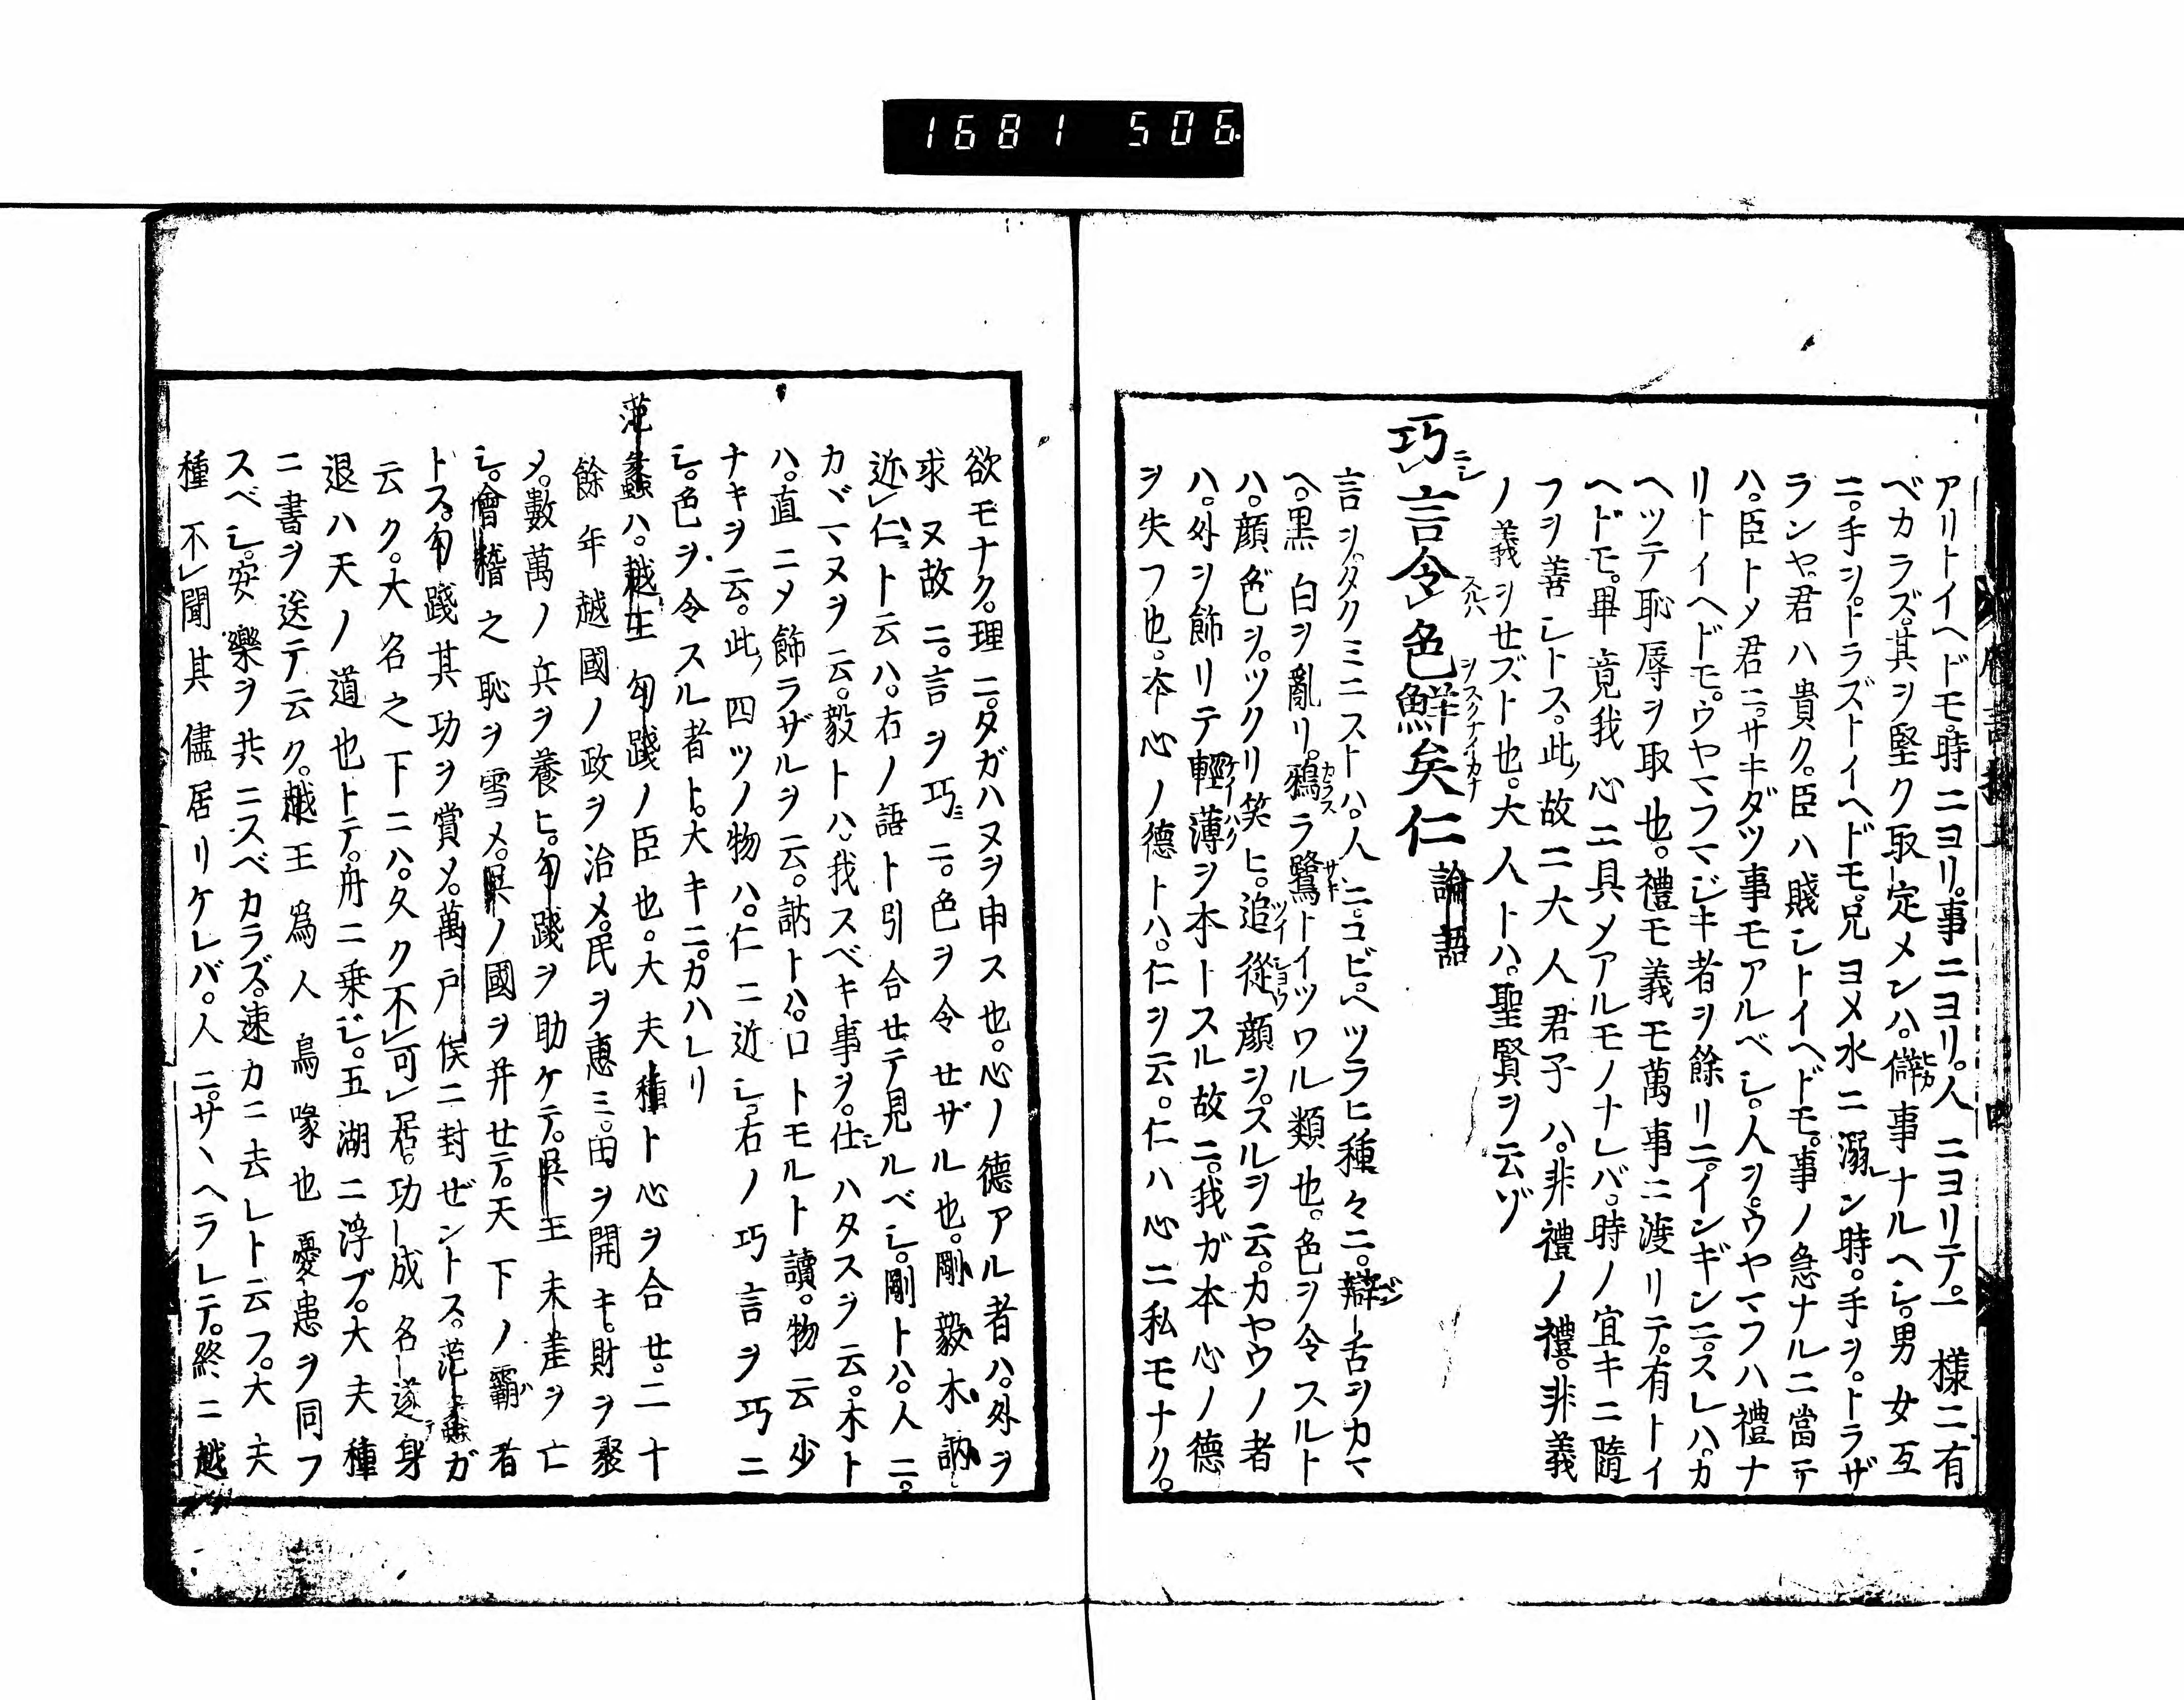 1681 506
アリトイヘドモ。時ニヨリ。事ニヨリ。人ニヨリテ。一樣ニ有
ベカラズ。其ヲ堅ク取定メンハ。僻事ナルヘシ。男女互
ニ。手ヲ。トラズトイヘドモ。兄ヨメ水ニ溺レン時。手ヲ。トラザ
ランヤ。君ハ貴ク。臣ハ賤シトイヘドモ。事ノ急ナルニ當テ
ハ。臣トメ君ニ。サキダツ事モアルベシ。人ヲ。ウヤマフハ禮ナ
リトイヘドモ。ウヤマフマジキ者ヲ餘リニ。インギンニ。スレハ。カ
ヘツテ恥辱ヲ取也。禮モ義モ萬事ニ渡リテ。有トイ
ヘドモ。畢竟我心ニ具メアルモノナレバ。時ノ宜キニ隨
フヲ善シトス。此ノ故ニ大人君子ハ。非禮ノ禮。非義
ノ義ヲせズト也。大人トハ。聖賢ヲ云ゾ
巧言令色鮮矣仁 論語
言ヲ。タクミニストハ。人ニ。コビ。ヘツラヒ種々ニ。辯舌ヲカマ
ヘ。黒白ヲ亂リ。鴉ヲ鷺トイツワル類也。色ヲ令スルト
ハ。顔色ヲ。ツクリ笑ヒ。追從顔ヲ。スルヲ云。カヤウノ者
ハ。外ヲ飾リテ輕薄ヲ本トスル故ニ。我ガ本心ノ德
ヲ失フ也。本心ノ德トハ。仁ヲ云。仁ハ心ニ私モナク。
欲モナク。理ニ。タガハヌヲ申ス也。心ノ德アル者ハ。外ヲ
求ヌ故ニ。言ヲ巧ニ。色ヲ令せザル也。剛毅木訥
近仁ト云ハ。右ノ語ト引合せテ見ルベシ。剛トハ。人ニ。
カヾマヌヲ云。毅トハ。我スベキ事ヲ。仕ハタスヲ云。木ト
ハ。直ニメ飾ラザルヲ云。訥トハ。口トモルト讀。物云少
ナキヲ云。此ノ四ツノ物ハ。仁ニ近シ。右ノ巧言ヲ巧ニ
シ。色ヲ。令スル者ト。大キニ。カハレリ
范蠡ハ。越王勾踐ノ臣也。大夫種ト心ヲ合せ。二十
餘年越國ノ政ヲ治メ。民ヲ惠ミ。田ヲ開キ。財ヲ聚
メ。數萬ノ兵ヲ養ヒ。勾踐ヲ助ケテ。呉王夫差ヲ亡
シ。會稽之恥ヲ雪メ。呉ノ國ヲ并せテ。天下ノ霸者
トス。勾踐其功ヲ賞メ。萬戸侯ニ封ぜントス。范蠡ガ
云ク。大名之下ニハ。久ク不可居。功成名遂身
退ハ天ノ道也トテ。舟ニ乗ジ。五湖ニ浮ブ。大夫種
ニ書ヲ送テ云ク。越王爲人鳥喙也憂患ヲ同フ
スベシ。安樂ヲ共ニスベカラズ。速カニ去レト云フ。大夫
種不聞其儘居リケレバ。人ニ。サヽヘラレテ。終ニ越